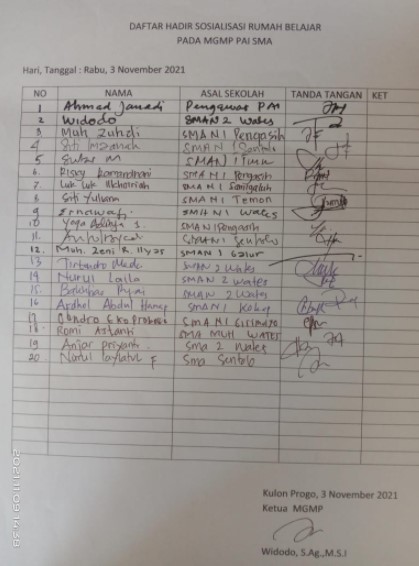 DAFTAR HADIR SOSIALISASI RUMAH BELAJAR
PADA MGMP PAI SMA
Hari, Tanggal : Rabu, 3 November 2021
NO NAMA ASAL SEKOLAH TANDA TANGAN KET
1 Ahmad Pengawas PAI
2 Widodo SMAN 2 Wates
3 Muh Zuhdi SMAN 1 Pengasih
4 Siti SMAN 1 Sentolo
5 M SMAN 1
6. Risky SMAN 1 Pengasih
7 Luk Luk SMAN 1
8 Siti Yuliana SMAN 1 Temon
9 Ernawati Wates
10 Yoga Aditya S. SMAN 1 Pengasih
11. SMAN 1 Sentolo
12. Muh. Zeni R. Ilyas SMAN 1 Galur
13 SMAN 2 Wates
14 Nurul Laila SMAN 2 Wates
15. SMAN 2 Wates
16 Abdul SMAN 1 Kokap
17 Candra Eko SMAN 1 Girimulyo
18. Romi SMA MUH WATES
19 Anjar Priyant SMA 2 Wates
20 Nurul Laylatul F SMA Sentolo
Kulon Progo, 3 November 2021
Ketua MGMP
Widodo, S.Ag.,M.S.I